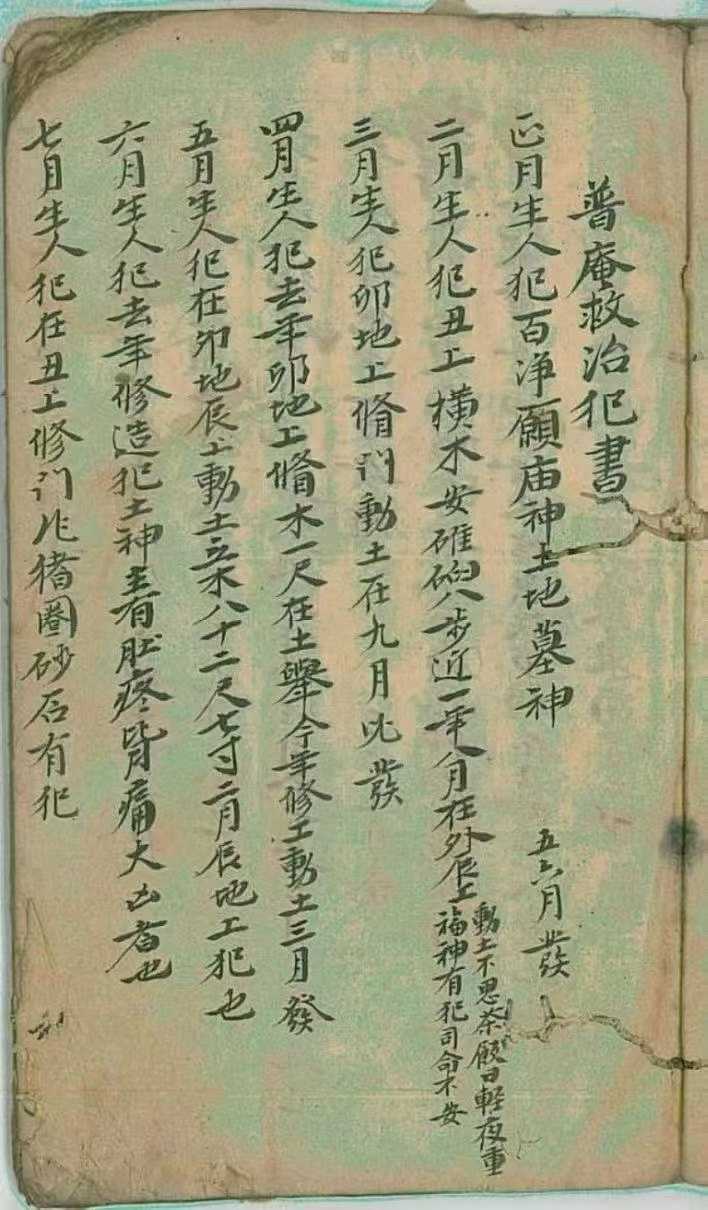 普庵救治犯書
正月生人犯百净願庙神土地墓神 五六月發
二月生人犯丑上橫木安碓硙八步近一年八月在外辰上動土不思茶飯日輕夜重
福神有犯司命不安
三月生人犯卯地上脩门動土在九月此發
四月生人犯去年卯地上脩木一尺在土舉今年修工動土三月發
五月生人犯在卯地辰上動土立木八十二尺七寸二月辰地工犯也
六月生人犯去年修造犯土神主有肚疼背痛大凶者也
七月生人犯在丑上修门作猪圈砂石有犯